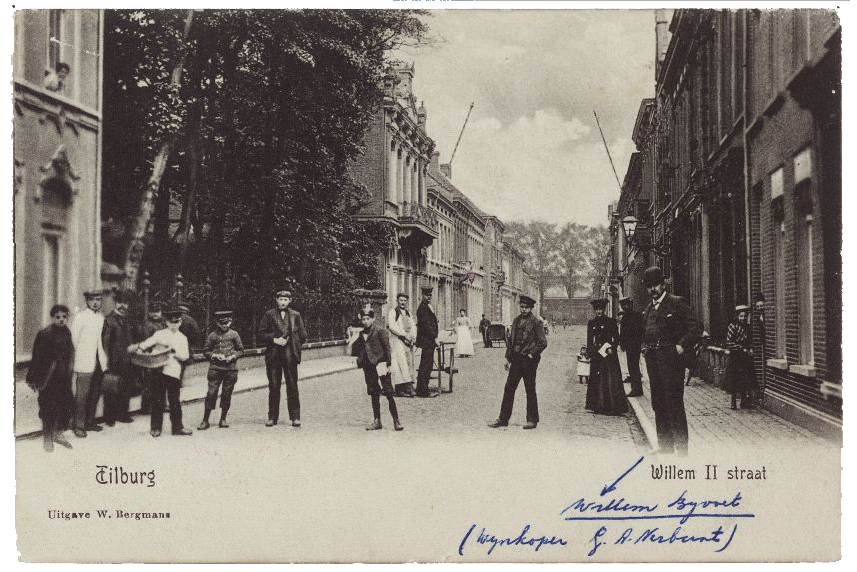 Tilburg
Willem II straat
Uitgave W. Bergmans
Willem Byvoet
(Wynkoper G. A. Verbunt)